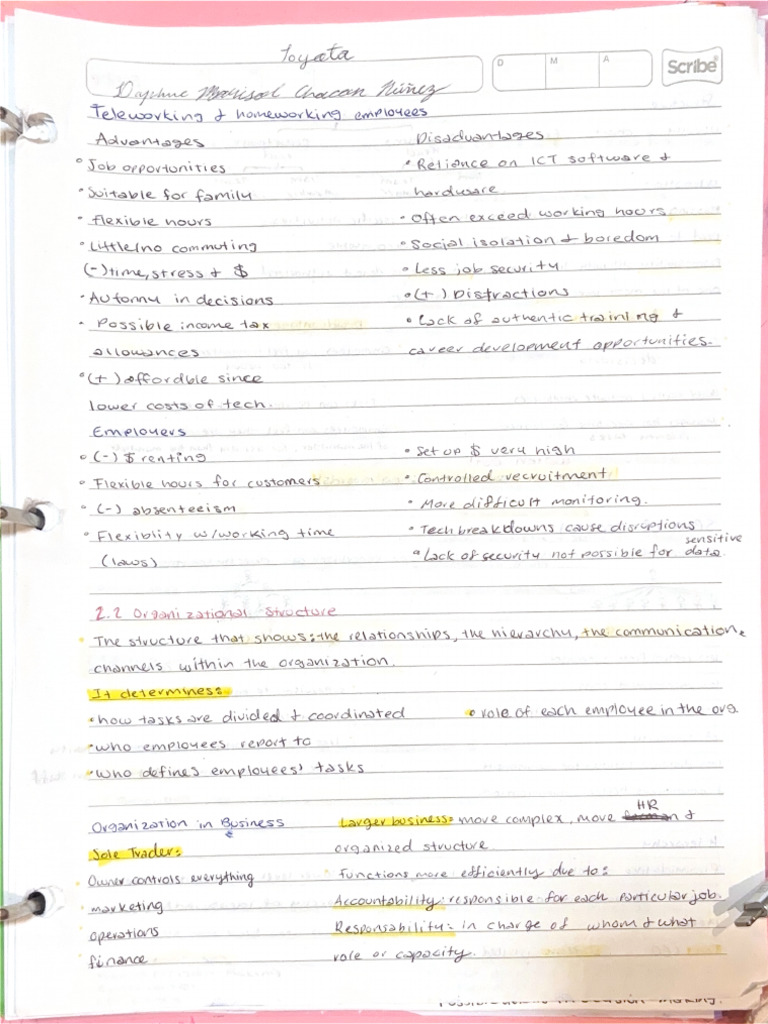 Toyota
Daphne Marisol Chacon Núñez
D M A
Scribe®
Teleworking & homeworking employees
Advantages
• Job opportunities
• Suitable for family
• flexible hours
• Little/no commuting
(-) time, stress & $
• Autonmy in decisions
• Possible income tax
allowances
• (+) affordable since
lower costs of tech.
Disadvantages
• Reliance on ICT software &
hardware
• Often exceed working hours
• Social isolation & boredom
• Less job security
• (+) Distractions
• Lack of authentic training &
career development opportunities.
Employers
• (-) $ renting
• Flexible hours for customers
• (-) absenteeism
• Flexiblity w/working time
(laws)
• Set up $ very high
• Controlled recruitment
• More difficult monitoring.
• Tech breakdowns cause disruptions
• Lack of security not possible for sensitive data.
2.2 Organizational Structure
The structure that shows: the relationships, the hierarchy, the communication
channels within the organization.
It determines:
• how tasks are divided & coordinated
• who employees report to
• who defines employees' tasks
• role of each employee in the org.
Organization in Business
Sole Trader:
Owner controls everything
marketing
operations
finance
Larger business: more complex, more HR &
organized structure
Functions more efficiently due to:
Accountability: responsible for each particular job.
Responsability: in charge of whom & what
role or capacity.